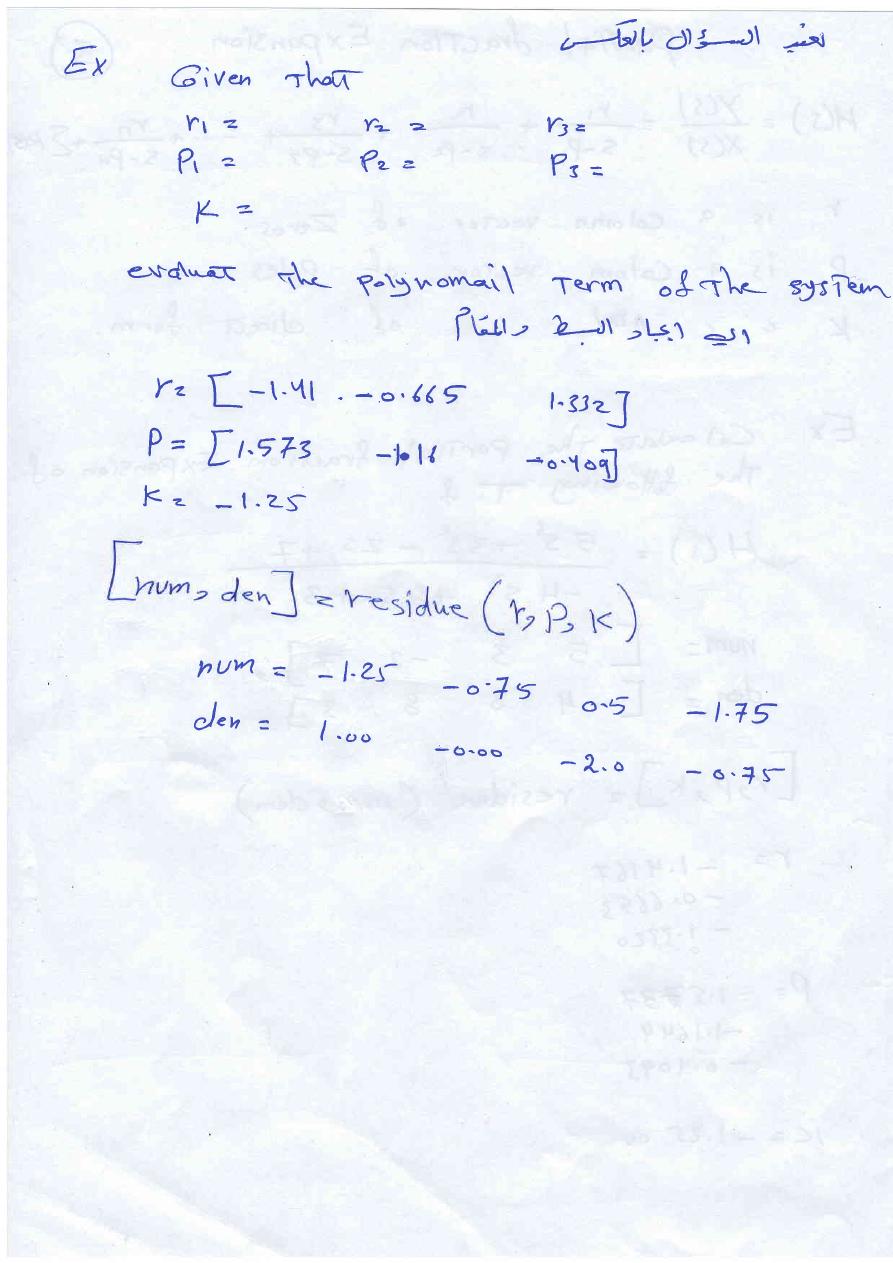 نعتبر السؤال بالعكس
Ex Given that
r1 = r2 = r3 =
P1 = P2 = P3 =
K =
evaluat the polynomail term of the system
ايجاد البسط والمقام
r = [ -1.41 -0.665 1.332 ]
P = [ 1.573 -1.16 -0.409 ]
K = -1.25
[num, den] = residue (r, P, K)
num = -1.25 -0.75 0.5 -1.75
den = 1.00 -0.00 -2.0 -0.75